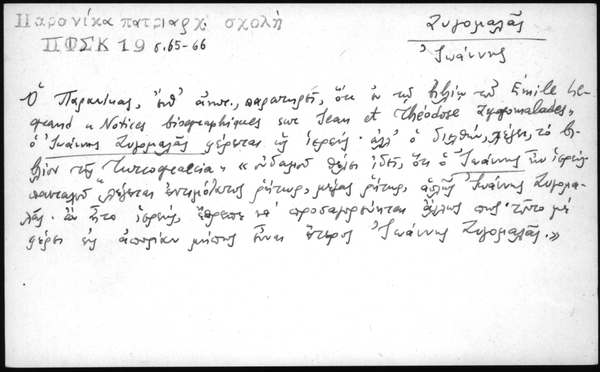 Παρανίκα πατριαρχ. σχολή
ΠΦΣΚ 19 σ.65-66
Ζυγομαλᾶς
Ἰωάννης
Ὁ Παρανίκας, ἔνθ' ἀνωτ., παρατηρεῖ, ὅτι ἐν τῷ βιβλίῳ τοῦ Émile Le-
grand « Notices biographiques sur Jean et Théodose Zygomalades»
ὁ Ἰωάννης Ζυγομαλᾶς φέρεται ὡς ἱερεύς· ἀλλ' ὁ διελθών, λέγει, τὸ βι-
βλίον τῆς Turcograecia « οὐδαμοῦ θέλει ἰδεῖ, ὅτι ὁ Ἰωάννης ἦν ἱερεύς
πανταχοῦ λέγεται ἐντιμότατος ῥήτωρ, μέγας ῥήτωρ, ἁπλῶς Ἰωάννης Ζυγομα-
λᾶς· ἂν ἦτο ἱερεύς, ἔπρεπε νὰ προσαγορεύηται ἄλλως πως· τοῦτο μὲ
φέρει εἰς ἀπορίαν μήπως εἶναι ἕτερος Ἰωάννης Ζυγομαλᾶς.»